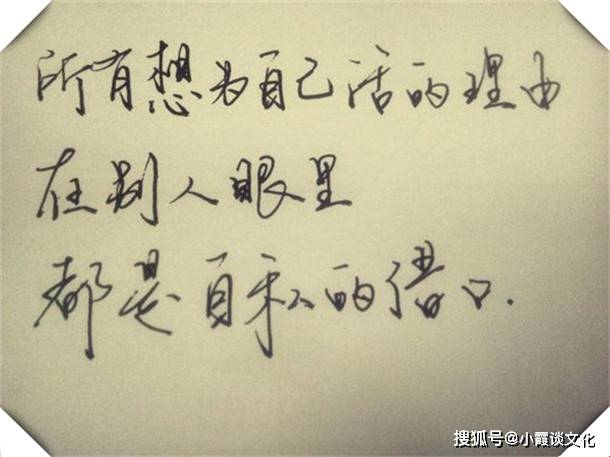 所有想为自己活的理由
在别人眼里
都是自私的借口.
搜狐号@小霞谈文化